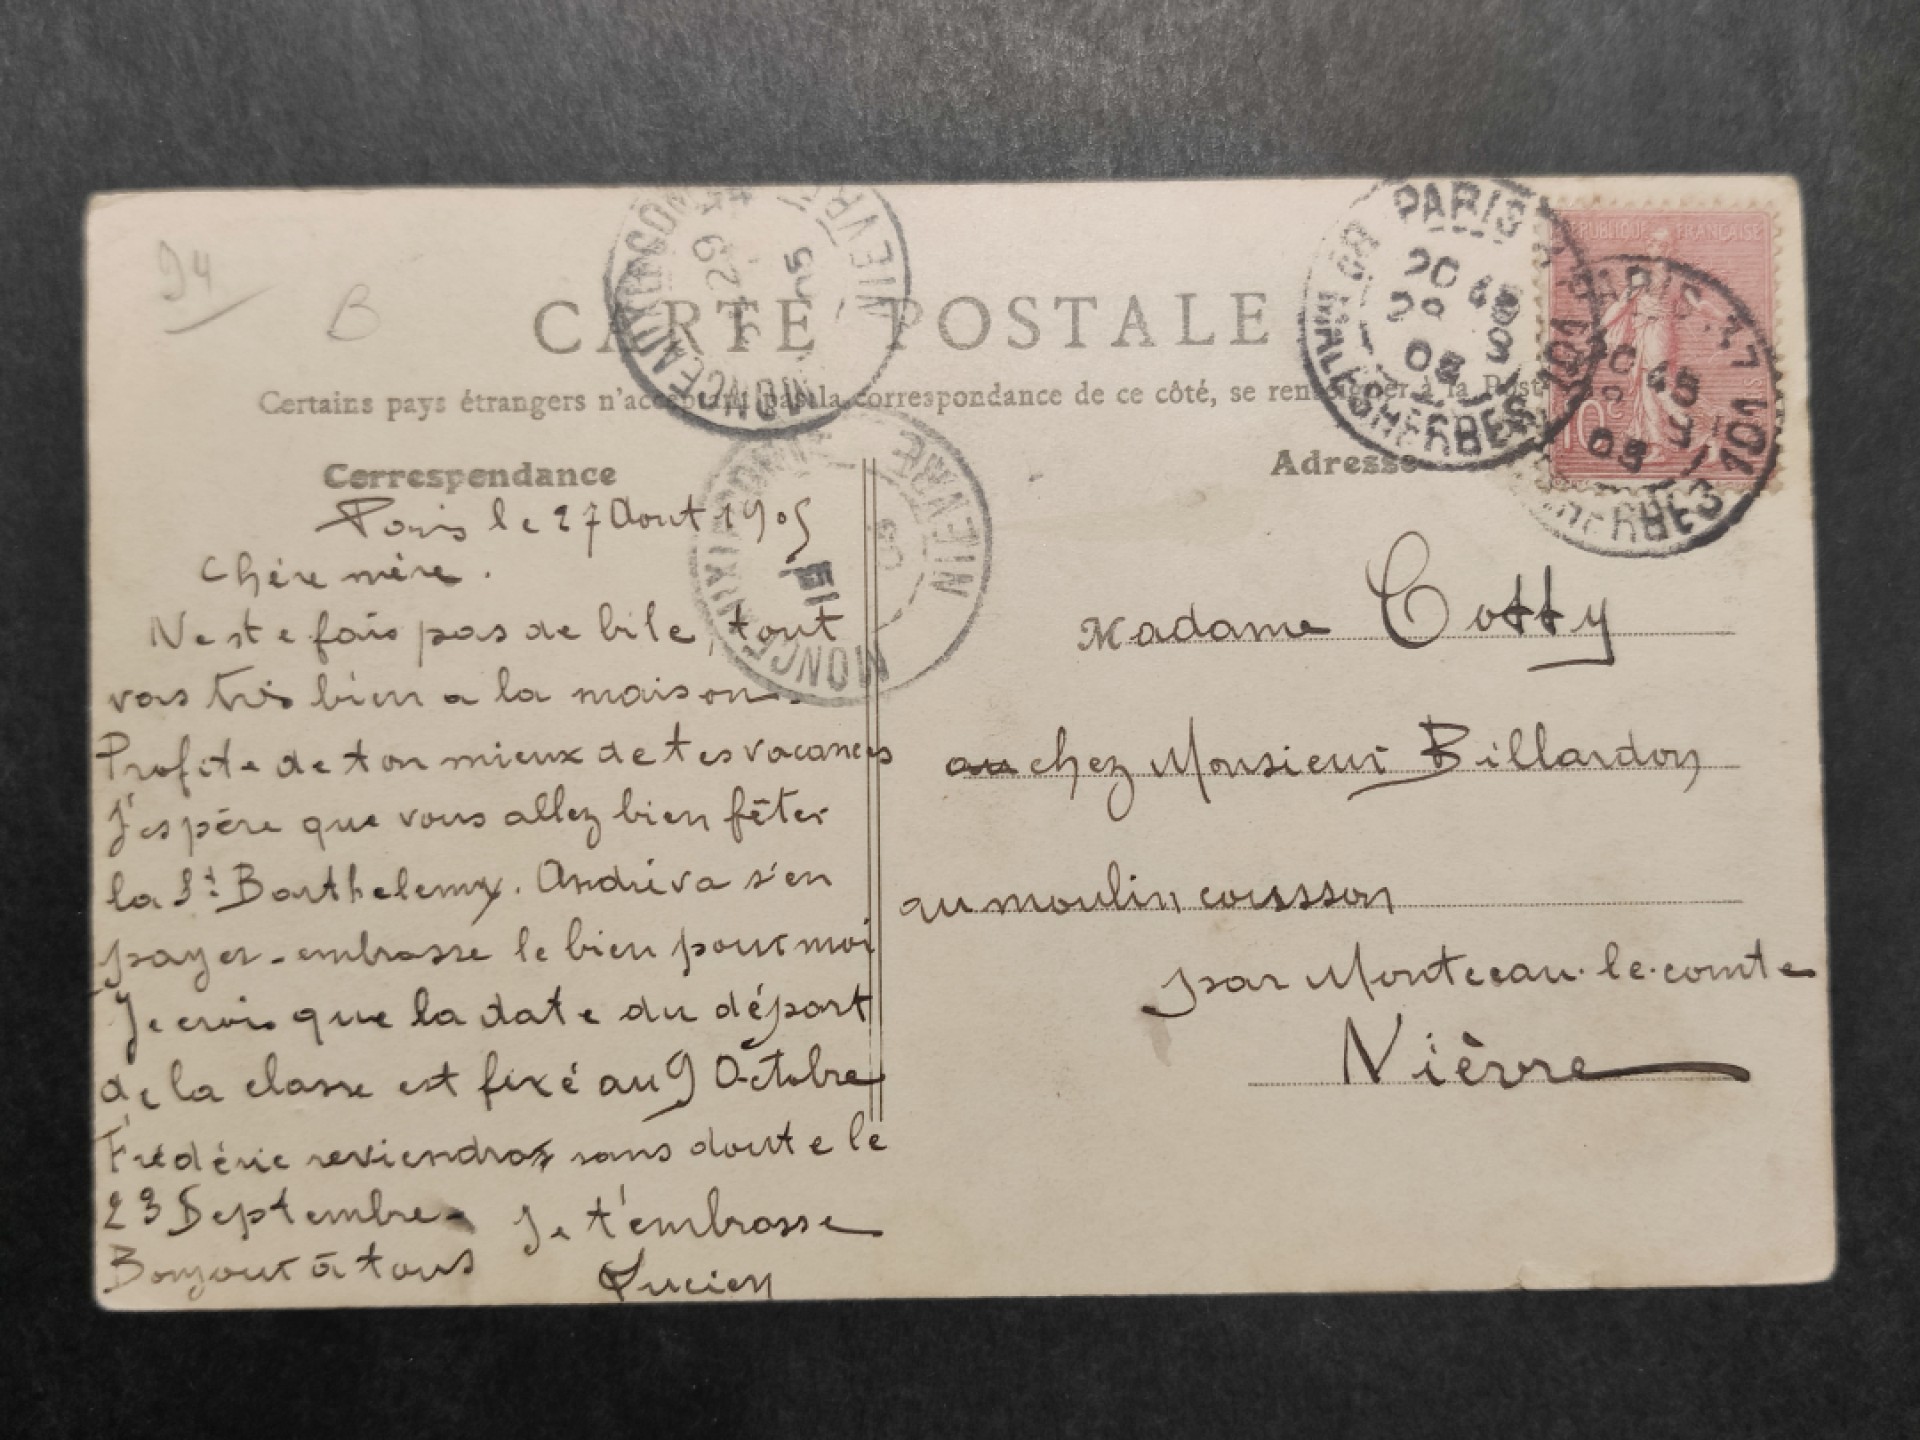 94
B
CARTE POSTALE
Certains pays étrangers n'acceptant pas la correspondance de ce côté, se renseigner à la Poste
Correspondance
Paris le 27 Aout 1905
Chère mère.
Ne te fais pas de bile, tout
vas très bien a la maison.
Profite de ton mieux de tes vacances
J'espère que vous allez bien fêter
la St Barthelemy. André va s'en
payer - embrasse le bien pour moi
Je crois que la date du départ
de la classe est fixé au 9 Octobre
Frédéric reviendra sans doute le
23 Septembre.
Je t'embrasse
Bonjour à tous
Lucien
Adresse
Madame Cotty
au chez Monsieur Billardon
au moulin cousson
par Monceau-le-comte
Nièvre
REPUBLIQUE FRANÇAISE
10c
PARIS 101
20 45
29 8
05
BD MALESHERBES
PARIS 101
45
05
MALESHERBES
NIEVRE
29
05
NIEVRE
05